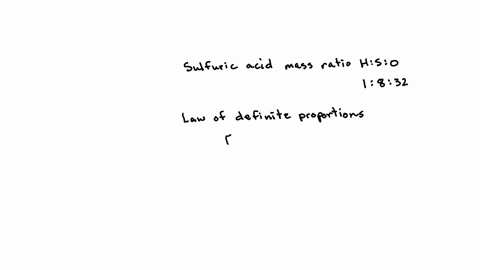 Sulfuric acid mass ratio H:S:O
1:8:32
Law of definite proportions